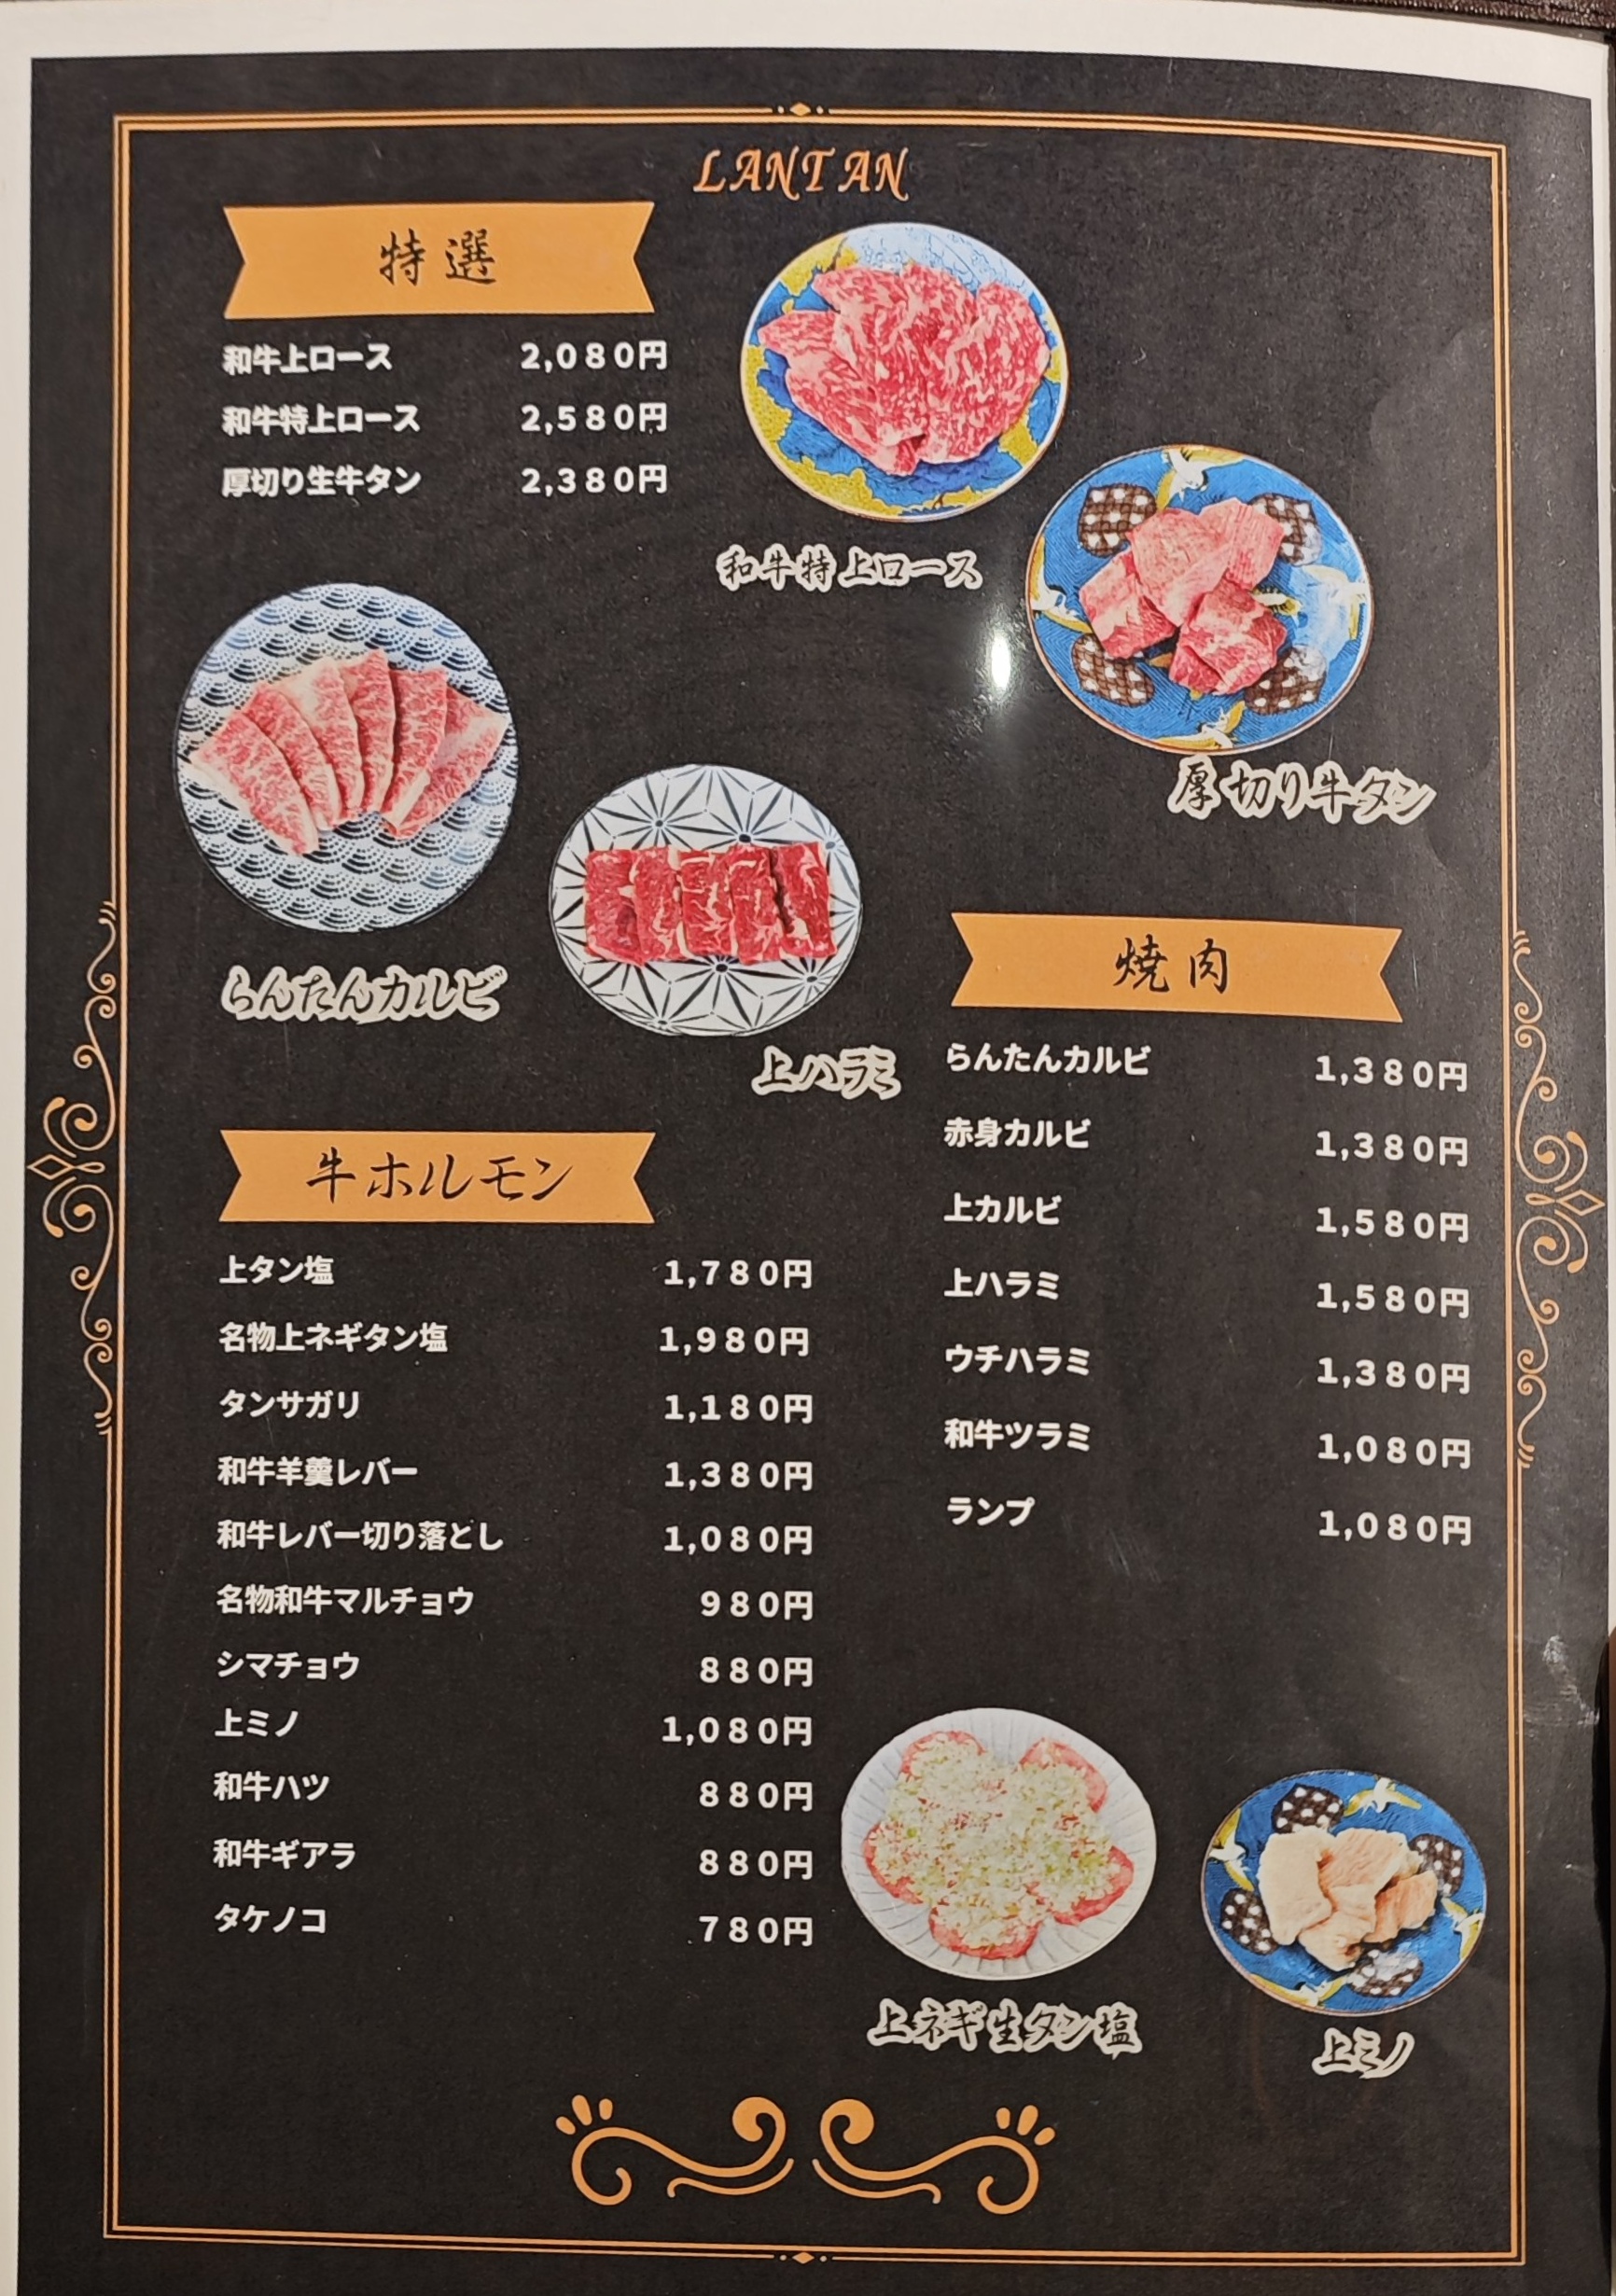 LANTAN
特選
和牛上ロース 2,080円
和牛特上ロース 2,580円
厚切り生牛タン 2,380円
和牛特上ロース
厚切り牛タン
らんたんカルビ
上ハラミ
焼肉
らんたんカルビ 1,380円
赤身カルビ 1,380円
上カルビ 1,580円
上ハラミ 1,580円
ウチハラミ 1,380円
和牛ツラミ 1,080円
ランプ 1,080円
牛ホルモン
上タン塩 1,780円
名物上ネギタン塩 1,980円
タンサガリ 1,180円
和牛羊羹レバー 1,380円
和牛レバー切り落とし 1,080円
名物和牛マルチョウ 980円
シマチョウ 880円
上ミノ 1,080円
和牛ハツ 880円
和牛ギアラ 880円
タケノコ 780円
上ネギ生タン塩
上ミノ